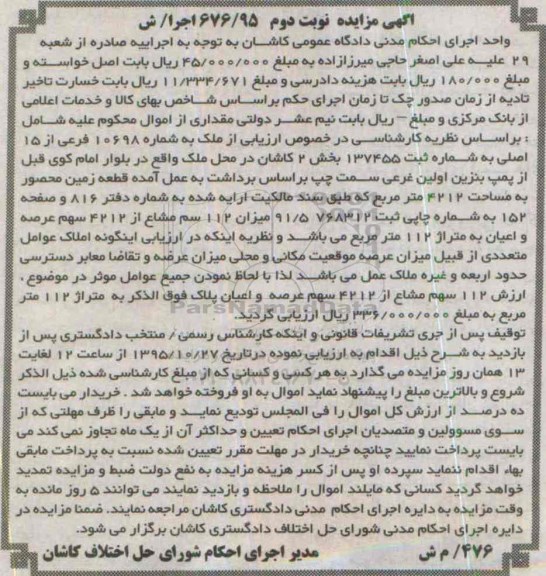 آگهی مزایده نوبت دوم ۶۷۶/۹۵ اجرا/ ش
واحد اجرای احکام مدنی دادگاه عمومی کاشان به توجه به اجراییه صادره از شعبه
۲۹ علیه علی اصغر حاجی میرزازاده به مبلغ ۴۵/۰۰۰/۰۰۰ ریال بابت اصل خواسته و
مبلغ ۱۸۰/۰۰۰ ریال بابت هزینه دادرسی و مبلغ ۱۱/۳۳۴/۶۷۱ ریال بابت خسارت تاخیر
تادیه از زمان صدور چک تا زمان اجرای حکم براساس شاخص بهای کالا و خدمات اعلامی
از بانک مرکزی و مبلغ - ریال بابت نیم عشر دولتی مقداری از اموال محکوم علیه شامل
: براساس نظریه کارشناسی در خصوص ارزیابی از ملک به شماره ۱۰۶۹۸ فرعی از ۱۵
اصلی به شماره ثبت ۱۳۷۴۵۵ بخش ۲ کاشان در محل ملک واقع در بلوار امام کوی قبل
از پمپ بنزین اولین غرعی سمت چپ براساس برداشت به عمل آمده قطعه زمین محصور
به مساحت ۴۲۱۲ متر مربع که طبق سند مالکیت ارایه شده به شماره دفتر ۸۱۶ و صفحه
۱۵۲ به شماره چاپی ثبت ۷۶۸۳۱۲ ۹۱/۵ میزان ۱۱۲ سم مشاع از ۴۲۱۲ سهم عرصه
و اعیان به متراژ ۱۱۲ متر مربع می باشد و نظریه اینکه در ارزیابی اینگونه املاک عوامل
متعددی از قبیل میزان عرضه موقعیت مکانی و محلی میزان عرضه و تقاضا معابر دسترسی
حدود اربعه و غیره ملاک عمل می باشد لذا با لحاظ نمودن جمیع عوامل موثر در موضوع ،
ارزش ۱۱۲ سهم مشاع از ۴۲۱۲ سهم عرصه و اعیان پلاک فوق الذکر به متراژ ۱۱۲ متر
مربع به مبلغ ۳۳۶/۰۰۰/۰۰۰ ریال ارزیابی گردید.
توقیف پس از جری تشریفات قانونی و اینکه کارشناس رسمی / منتخب دادگستری پس از
بازدید به شرح ذیل اقدام به ارزیابی نموده درتاریخ ۱۳۹۵/۱۰/۲۷ از ساعت ۱۲ لغایت
۱۳ همان روز مزایده می گذارد به هر کسی و کسانی که از مبلغ کارشناسی شده ذیل الذکر
شروع و بالاترین مبلغ را پیشنهاد نماید اموال به او فروخته خواهد شد . خریدار می بایست
ده درصد از ارزش کل اموال را فی المجلس تودیع نماید و مابقی را ظرف مهلتی که از
سوی مسوولین و متصدیان اجرای احکام تعیین و حداکثر آن از یک ماه تجاوز نمی کند می
بایست پرداخت نمایید چنانچه خریدار در مهلت مقرر تعیین شده نسبت به پرداخت مابقی
بهاء اقدام ننماید سپرده او پس از کسر هزینه مزایده به نفع دولت ضبط و مزایده تمدید
خواهد گردید کسانی که مایلند اموال را ملاحظه و بازدید نمایند می توانند ۵ روز مانده به
وقت مزایده به دایره اجرای احکام مدنی دادگستری کاشان مراجعه نمایند. ضمنا مزایده در
دایره اجرای احکام مدنی شورای حل اختلاف دادگستری کاشان برگزار می شود.
۴۷۶/ م ش مدیر اجرای احکام شورای حل اختلاف کاشان